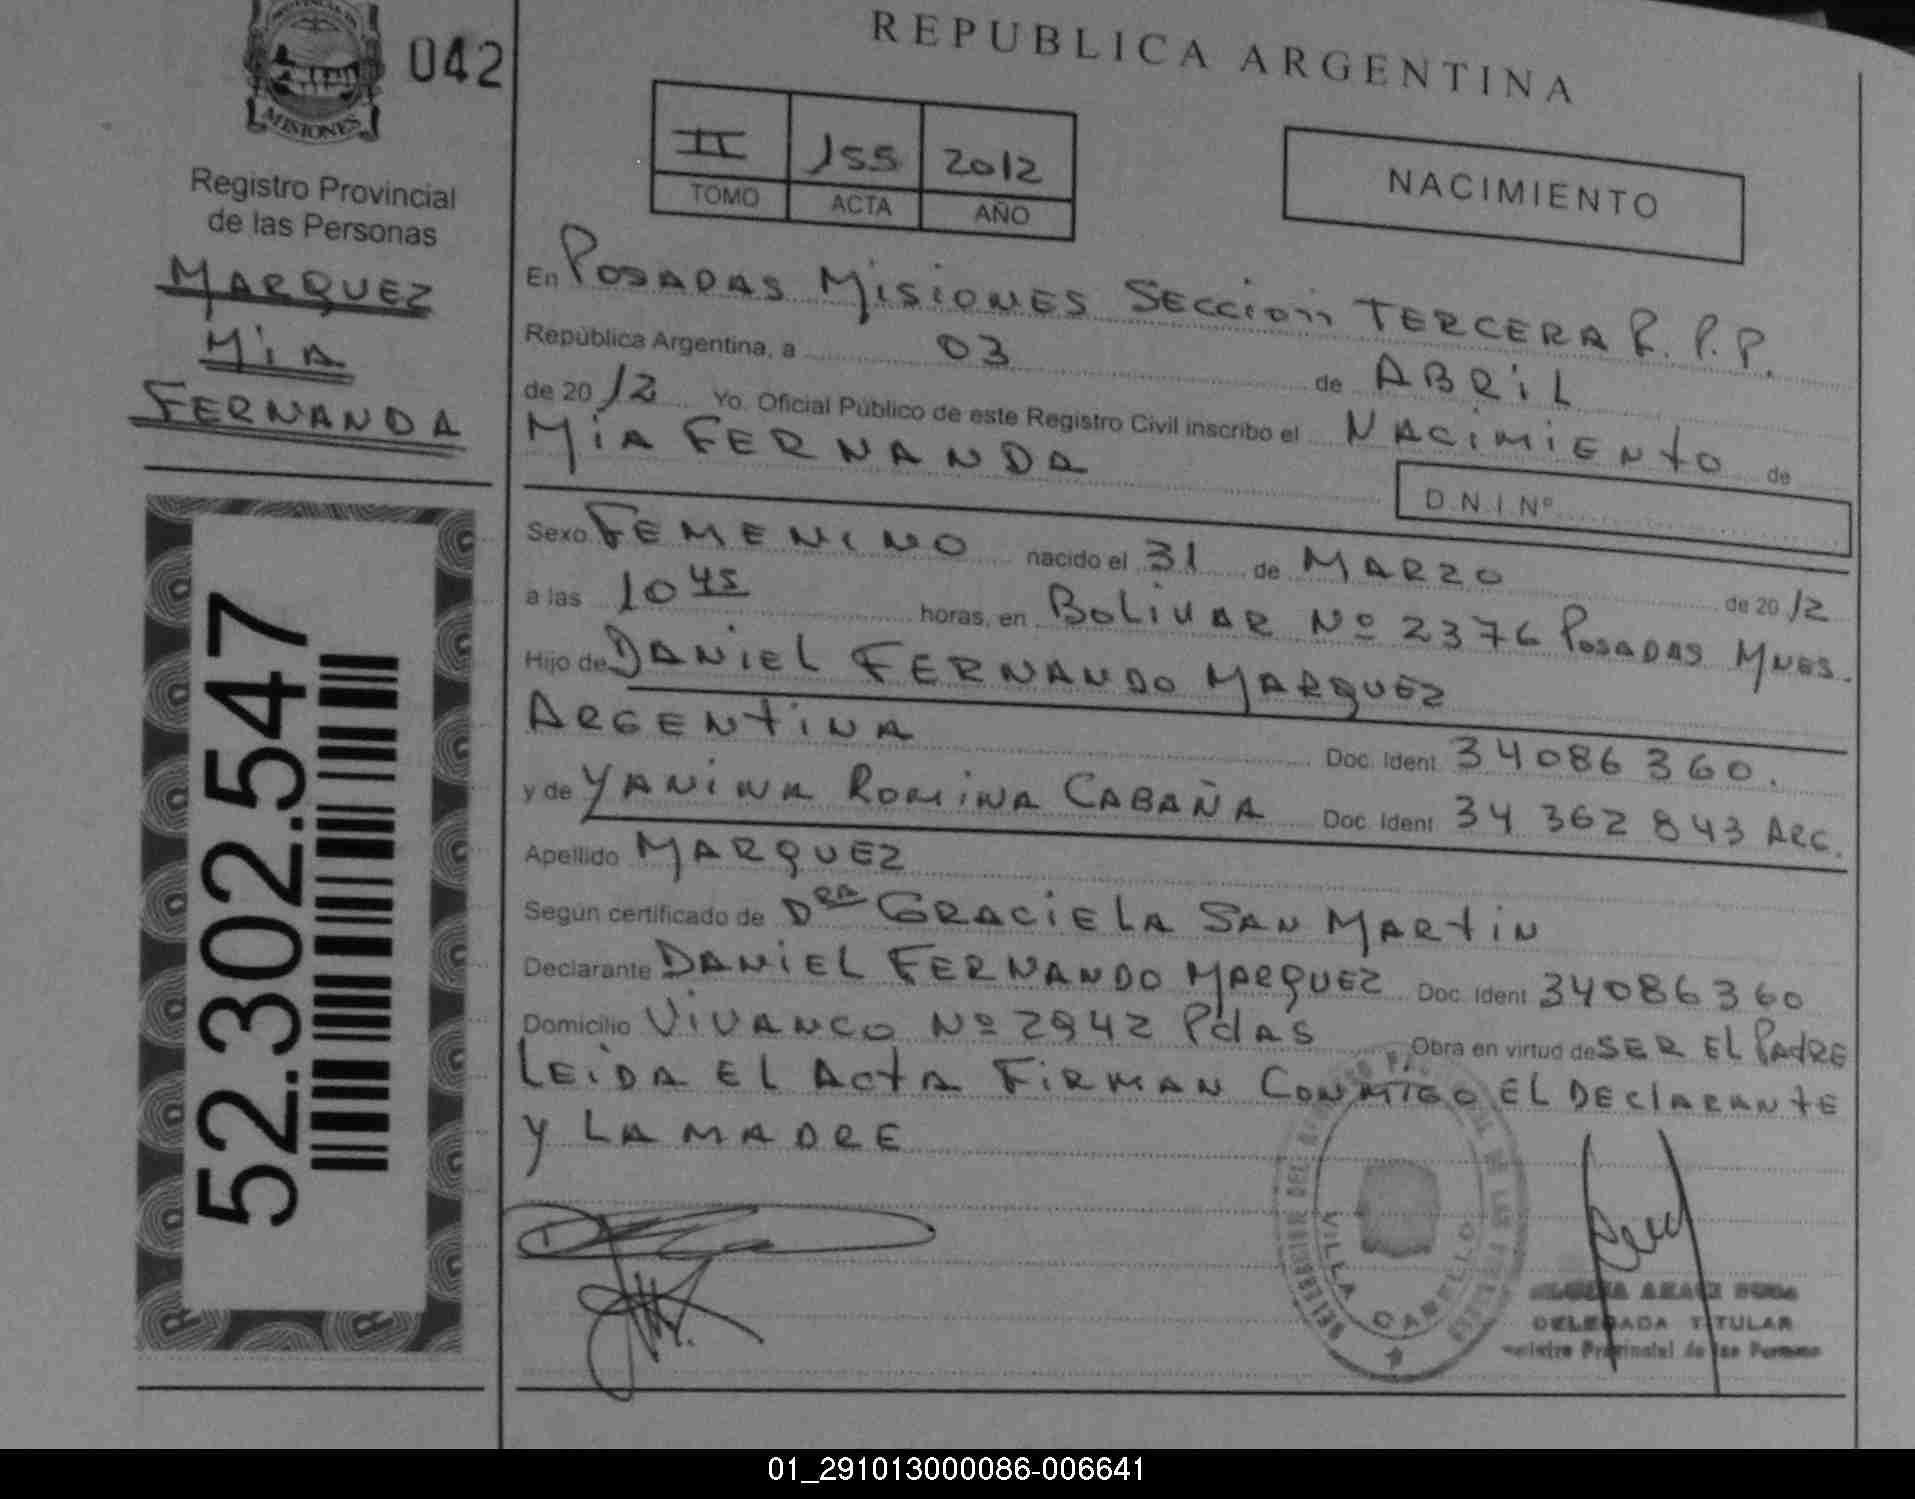 REPUBLICA ARGENTINA
MISIONES
042
Registro Provincial
de las Personas
MARQUEZ
MiA
FERNANDA
52.302.547
II 155 2012
TOMO ACTA AÑO
NACIMIENTO
En POSADAS MISIONES SECCION TERCERA R.P.P.
República Argentina, a 03 de ABRiL
de 20 12 Yo. Oficial Público de este Registro Civil inscribo el NACIMIENTO de
MiA FERNANDA
D.N.I Nº
Sexo FEMENINO nacido el 31 de MARZO de 20 12
a las 10 45 horas, en BOLIVAR Nº 2376 POSADAS MNES.
Hijo de DANIEL FERNANDO MARQUEZ
ARGENTINA Doc. Ident. 34086360.
y de YANINA ROMINA CABAÑA Doc. Ident. 34 362 843 ARG.
Apellido MARQUEZ
Según certificado de DRA GRACIELA SAN MARTIN
Declarante DANIEL FERNANDO MARQUEZ Doc. Ident. 34086360
Domicilio VIVANCO Nº 2942 PdAS Obra en virtud de SER EL PAdRE
LEIDA EL ACTA FIRMAN CONMIGO EL DECLARANTE
Y LA MADRE
VILLA CABELLO
DELEGADA TITULAR
Registro Provincial de las Personas
01_291013000086-006641